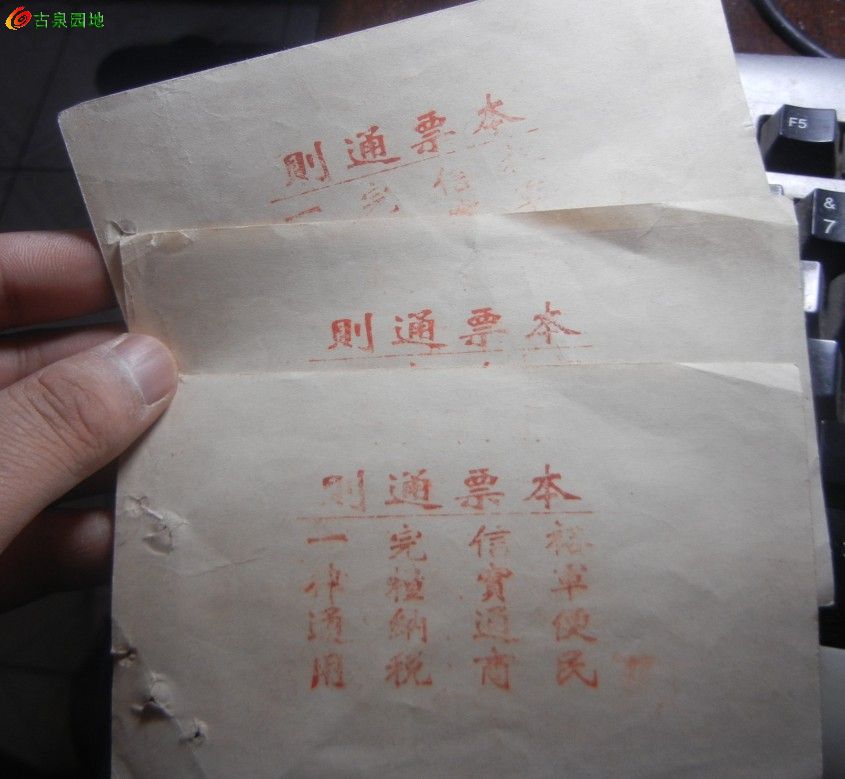 古泉园地
本票通則
信
完
一
本票通則
本票通則
裕軍便民
信實通商
完糧納税
一律通用
F5
&
7